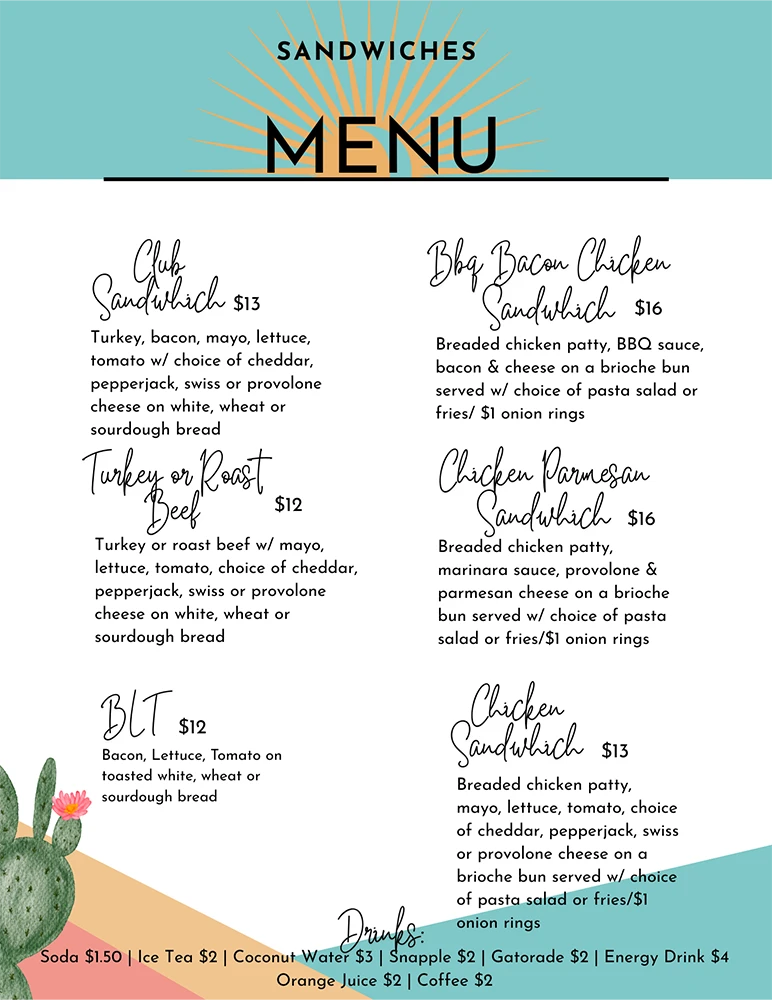 SANDWICHES
MENU
Club
Sandwhich $13
Turkey, bacon, mayo, lettuce,
tomato w/ choice of cheddar,
pepperjack, swiss or provolone
cheese on white, wheat or
sourdough bread
Turkey or Roast
Beef $12
Turkey or roast beef w/ mayo,
lettuce, tomato, choice of cheddar,
pepperjack, swiss or provolone
cheese on white, wheat or
sourdough bread
BLT $12
Bacon, Lettuce, Tomato on
toasted white, wheat or
sourdough bread
Bbq Bacon Chicken
Sandwhich $16
Breaded chicken patty, BBQ sauce,
bacon & cheese on a brioche bun
served w/ choice of pasta salad or
fries/ $1 onion rings
Chicken Parmesan
Sandwhich $16
Breaded chicken patty,
marinara sauce, provolone &
parmesan cheese on a brioche
bun served w/ choice of pasta
salad or fries/$1 onion rings
Chicken
Sandwhich $13
Breaded chicken patty,
mayo, lettuce, tomato, choice
of cheddar, pepperjack, swiss
or provolone cheese on a
brioche bun served w/ choice
of pasta salad or fries/$1
onion rings
Drinks:
Soda $1.50 | Ice Tea $2 | Coconut Water $3 | Snapple $2 | Gatorade $2 | Energy Drink $4
Orange Juice $2 | Coffee $2